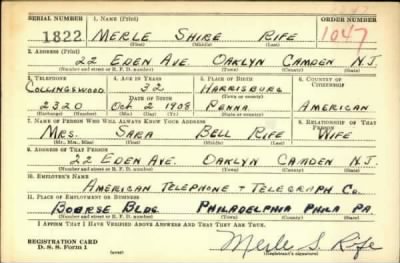 SERIAL NUMBER 1. NAME (Print) ORDER NUMBER
1822 MERLE SHIRE RIFE 1047
(First) (Middle) (Last)
2. ADDRESS (Print)
22 EDEN AVE. OAKLYN CAMDEN N.J.
(Number and street or R. F. D. number) (Town) (County) (State)
3. TELEPHONE 4. AGE IN YEARS 5. PLACE OF BIRTH 6. COUNTRY OF CITIZENSHIP
COLLINGSWOOD 32 HARRISBURG
DATE OF BIRTH (Town or county)
2320 OCT 2 1908 PENNA. AMERICAN
(Exchange) (Number) (Mo.) (Day) (Yr.) (State or country)
7. NAME OF PERSON WHO WILL ALWAYS KNOW YOUR ADDRESS 8. RELATIONSHIP OF THAT PERSON
MRS. SARA BELL RIFE WIFE
(Mr., Mrs., Miss) (First) (Middle) (Last)
9. ADDRESS OF THAT PERSON
22 EDEN AVE. OAKLYN CAMDEN N.J.
(Number and street or R. F. D. number) (Town) (County) (State)
10. EMPLOYER'S NAME
AMERICAN TELEPHONE + TELEGRAPH CO.
11. PLACE OF EMPLOYMENT OR BUSINESS
BOURSE BLDG PHILADELPHIA PHILA PA
(Number and street or R. F. D. number) (Town) (County) (State)
I AFFIRM THAT I HAVE VERIFIED ABOVE ANSWERS AND THAT THEY ARE TRUE.
REGISTRATION CARD
D. S. S. Form 1 (over) Merle S. Rife
(Registrant's signature)